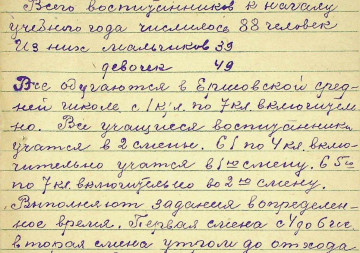 Всего воспитанников к началу
учебного года числилось 88 человек
Из них мальчиков 39
девочек 49
Все обучаются в Ершовской сред-
ней школе с 1 кл. по 7 кл. включитель-
но. Все учащиеся воспитанники
учатся в 2 смены. С 1 по 4 кл. вклю-
чительно учатся в 1ю смену. С 5го
по 7 кл. включительно во 2ю смену.
Выполняют задания в определен-
ное время. Первая смена с 4 до 6 час.
вторая смена утром до отхода